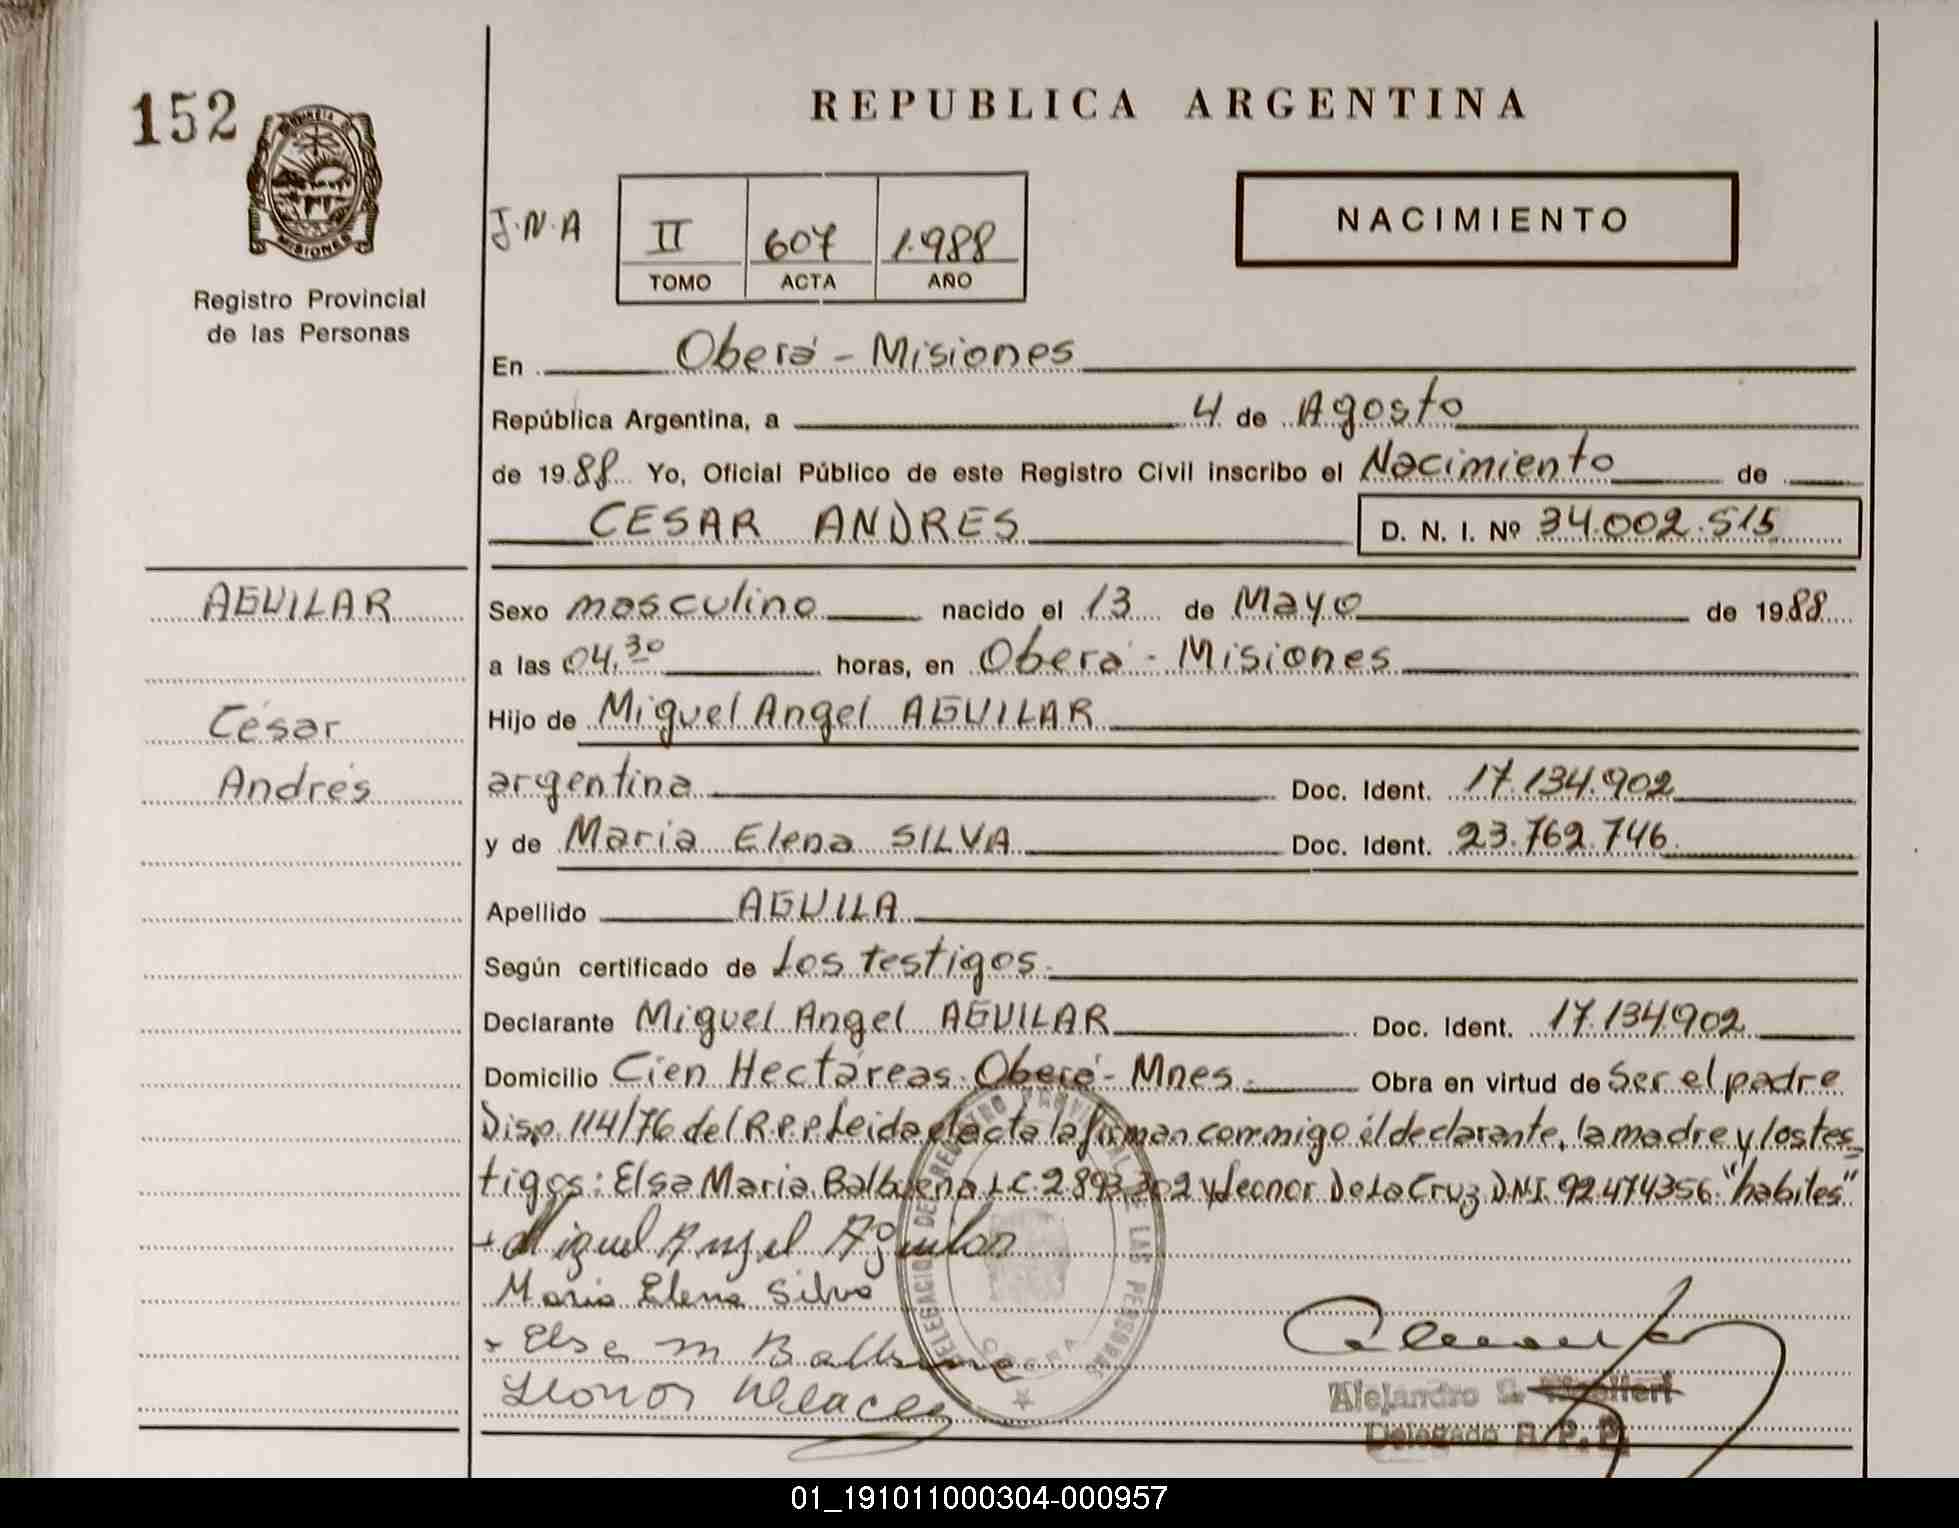 152
PROVINCIA DE
MISIONES
Registro Provincial
de las Personas
REPUBLICA ARGENTINA
J.N.A
II 607 1.988
TOMO ACTA AÑO
NACIMIENTO
En Oberá - Misiones
República Argentina, a 4 de Agosto
de 1988 Yo, Oficial Público de este Registro Civil inscribo el Nacimiento de
CESAR ANDRES D. N. I. Nº 34.002.515
AGUILAR
César
Andrés
Sexo masculino nacido el 13 de Mayo de 1988
a las 04.30 horas, en Oberá - Misiones
Hijo de Miguel Angel AGUILAR
argentina Doc. Ident. 17.134.902
y de Maria Elena SILVA Doc. Ident. 23.762.746
Apellido AGUILA
Según certificado de Los testigos.
Declarante Miguel Angel AGUILAR Doc. Ident. 17.134.902
Domicilio Cien Hectáreas. Oberá - Mnes. Obra en virtud de Ser el padre
Disp. 114/76 del R.P.P. Leida el acta la firman conmigo el declarante, la madre y los tes
tigos: Elsa Maria Balbuena L.C. 2.893.302 y Leonor De La Cruz D.N.I. 92.474356 "habiles"
Miguel Angel Aguilar
Maria Elena Silva
Elsa M Balbuena
Leonor
DELEGACION DE REGISTRO PROVINCIAL DE LAS PERSONAS
OBERA
Alejandro
Delegado R. P. P.
01_191011000304-000957